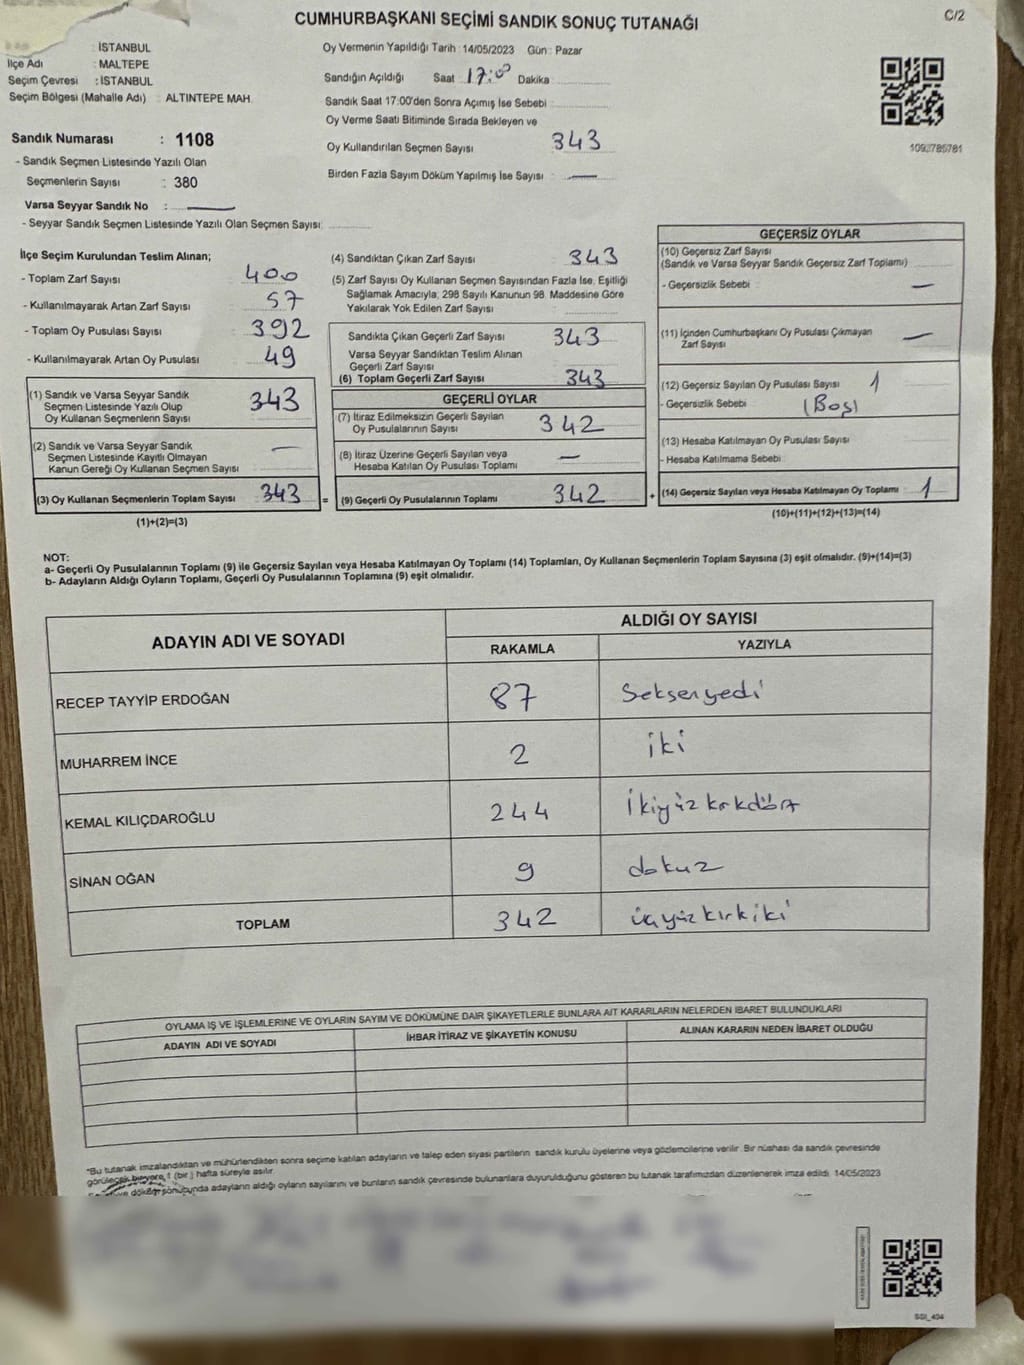 CUMHURBAŞKANI SEÇİMİ SANDIK SONUÇ TUTANAĞI
C/2
: İSTANBUL
İlçe Adı : MALTEPE
Seçim Çevresi : İSTANBUL
Seçim Bölgesi (Mahalle Adı) : ALTINTEPE MAH.
Sandık Numarası : 1108
- Sandık Seçmen Listesinde Yazılı Olan
Seçmenlerin Sayısı : 380
Varsa Seyyar Sandık No :
- Seyyar Sandık Seçmen Listesinde Yazılı Olan Seçmen Sayısı:
Oy Vermenin Yapıldığı Tarih : 14/05/2023 Gün : Pazar
Sandığın Açıldığı Saat 17:00 Dakika
Sandık Saat 17:00'den Sonra Açımış İse Sebebi :
Oy Verme Saati Bitiminde Sırada Bekleyen ve
Oy Kullandırılan Seçmen Sayısı : 343
Birden Fazla Sayım Döküm Yapılmış İse Sayısı : —
İlçe Seçim Kurulundan Teslim Alınan;
- Toplam Zarf Sayısı : 400
- Kullanılmayarak Artan Zarf Sayısı : 57
- Toplam Oy Pusulası Sayısı : 392
- Kullanılmayarak Artan Oy Pusulası : 49
(1) Sandık ve Varsa Seyyar Sandık
Seçmen Listesinde Yazılı Olup
Oy Kullanan Seçmenlerin Sayısı 343
(2) Sandık ve Varsa Seyyar Sandık
Seçmen Listesinde Kayıtlı Olmayan
Kanun Gereği Oy Kullanan Seçmen Sayısı —
(3) Oy Kullanan Seçmenlerin Toplam Sayısı 343
(1)+(2)=(3)
(4) Sandıktan Çıkan Zarf Sayısı : 343
(5) Zarf Sayısı Oy Kullanan Seçmen Sayısından Fazla İse, Eşitliği
Sağlamak Amacıyla, 298 Sayılı Kanunun 98. Maddesine Göre
Yakılarak Yok Edilen Zarf Sayısı :
Sandıkta Çıkan Geçerli Zarf Sayısı : 343
Varsa Seyyar Sandıktan Teslim Alınan
Geçerli Zarf Sayısı :
(6) Toplam Geçerli Zarf Sayısı : 343
GEÇERLİ OYLAR
(7) İtiraz Edilmeksizin Geçerli Sayılan
Oy Pusulalarının Sayısı : 342
(8) İtiraz Üzerine Geçerli Sayılan veya
Hesaba Katılan Oy Pusulası Toplamı : —
= (9) Geçerli Oy Pusulalarının Toplamı : 342
GEÇERSİZ OYLAR
(10) Geçersiz Zarf Sayısı
(Sandık ve Varsa Seyyar Sandık Geçersiz Zarf Toplamı)
- Geçersizlik Sebebi : —
(11) İçinden Cumhurbaşkanı Oy Pusulası Çıkmayan
Zarf Sayısı : —
(12) Geçersiz Sayılan Oy Pusulası Sayısı : 1
- Geçersizlik Sebebi : (Boş)
(13) Hesaba Katılmayan Oy Pusulası Sayısı :
- Hesaba Katılmama Sebebi :
+ (14) Geçersiz Sayılan veya Hesaba Katılmayan Oy Toplamı : 1
(10)+(11)+(12)+(13)=(14)
NOT:
a- Geçerli Oy Pusulalarının Toplamı (9) ile Geçersiz Sayılan veya Hesaba Katılmayan Oy Toplamı (14) Toplamları, Oy Kullanan Seçmenlerin Toplam Sayısına (3) eşit olmalıdır. (9)+(14)=(3)
b- Adayların Aldığı Oyların Toplamı, Geçerli Oy Pusulalarının Toplamına (9) eşit olmalıdır.
ADAYIN ADI VE SOYADI
ALDIĞI OY SAYISI
RAKAMLA YAZIYLA
RECEP TAYYİP ERDOĞAN 87 Seksenyedi
MUHARREM İNCE 2 iki
KEMAL KILIÇDAROĞLU 244 İkiyüz kırkdört
SİNAN OĞAN 9 dokuz
TOPLAM 342 üçyüzkırkiki
OYLAMA İŞ VE İŞLEMLERİNE VE OYLARIN SAYIM VE DÖKÜMÜNE DAİR ŞİKAYETLERLE BUNLARA AİT KARARLARIN NELERDEN İBARET BULUNDUKLARI
ADAYIN ADI VE SOYADI İHBAR İTİRAZ VE ŞİKAYETİN KONUSU ALINAN KARARIN NEDEN İBARET OLDUĞU
"Bu tutanak imzalandıktan ve mühürlendikten sonra seçime katılan adayların ve talep eden siyasi partilerin sandık kurulu üyelerine veya gözlemcilerine verilir. Bir nüshası da sandık çevresinde
görülecek bir yere 1 (bir) hafta süreyle asılır.
ve döküm sonucunda adayların aldığı oyların sayılarını ve bunların sandık çevresinde bulunanlara duyurulduğunu gösteren bu tutanak tarafımızdan düzenlenerek imza edildi. 14/05/2023